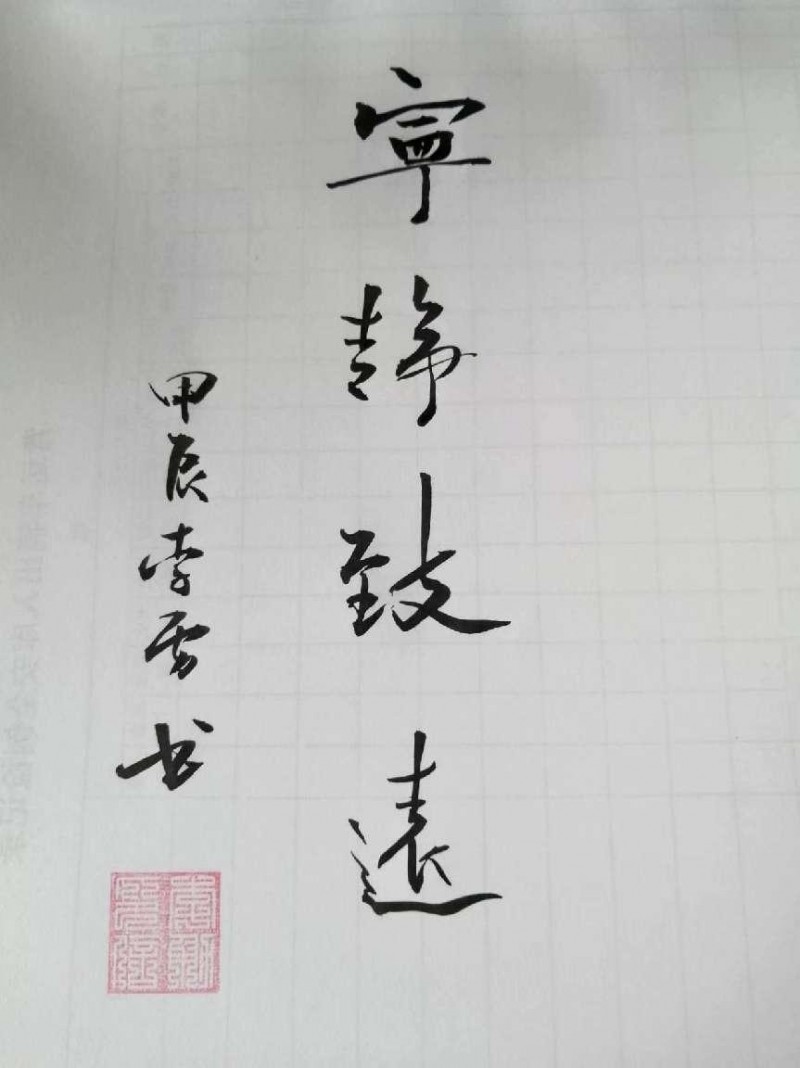 寧静致遠
甲辰李雪书